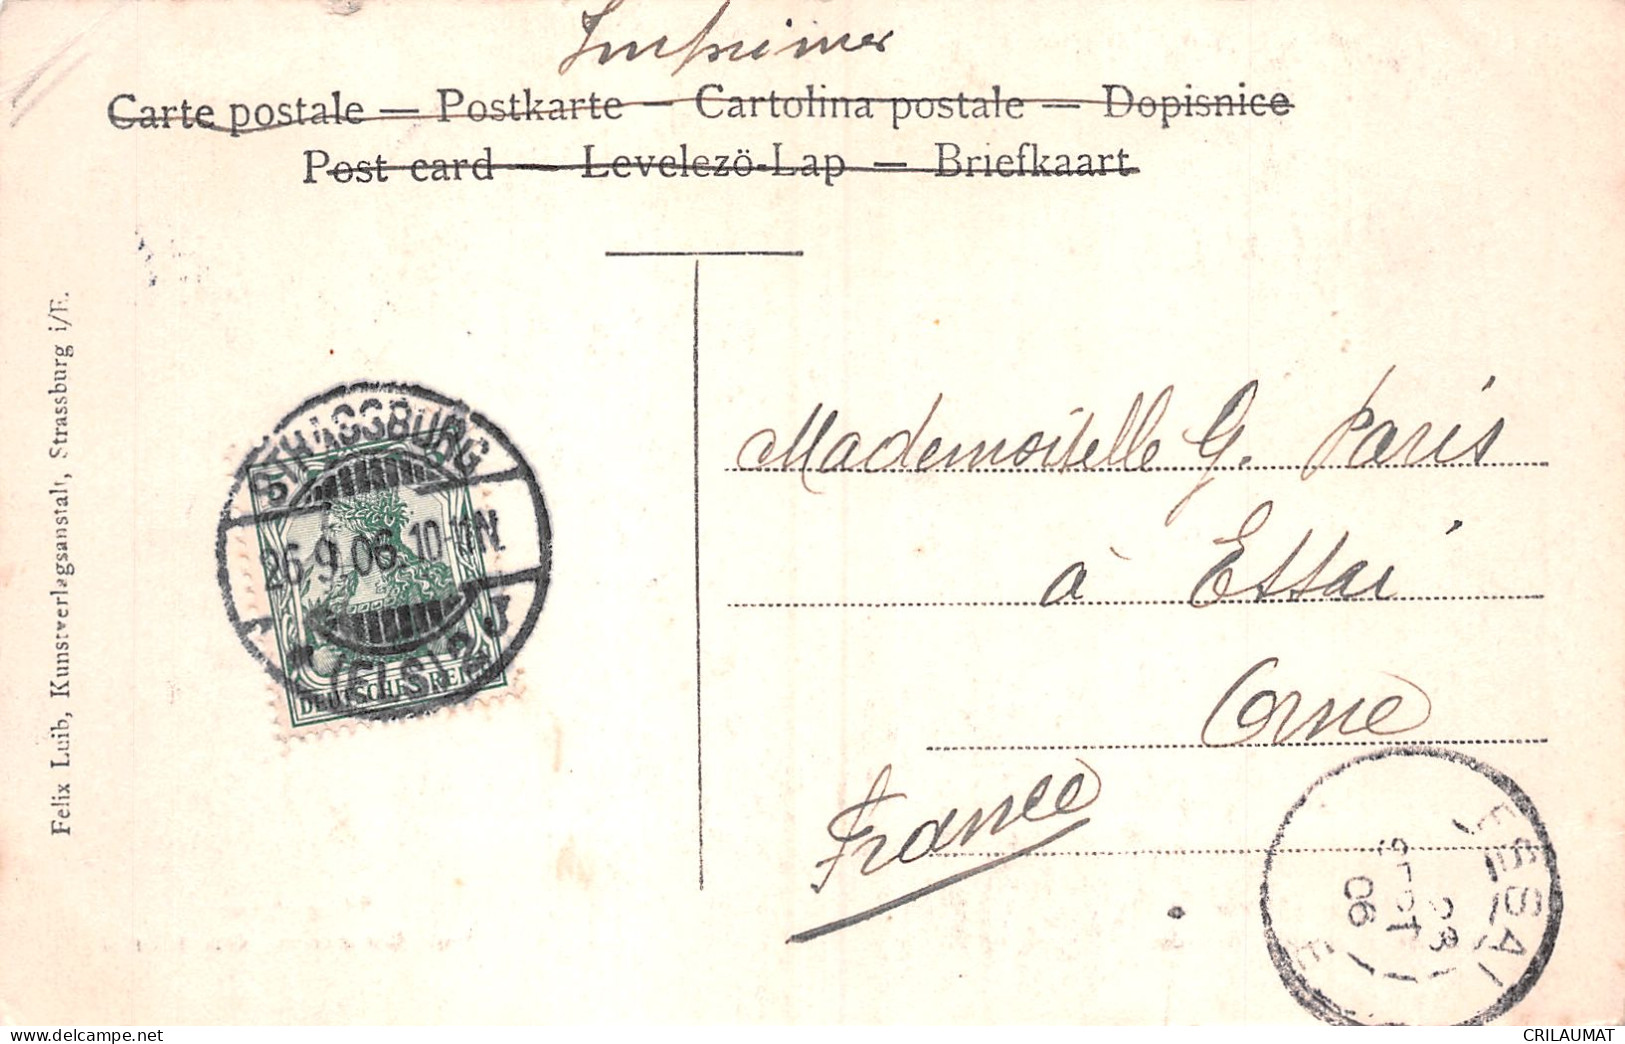 Imprimer
Carte postale — Postkarte — Cartolina postale — Dopisnice
Post card — Levelezö-Lap — Briefkaart
Felix Luib, Kunstverlagsanstalt, Strassburg i/E.
STRASSBURG
26.9.06. 10-11N.
(ELS)
DEUTSCHES REICH
Mademoiselle G. Paris
à Essai
Orne
France
ESSAI
28
SEPT
06
CRILAUMAT